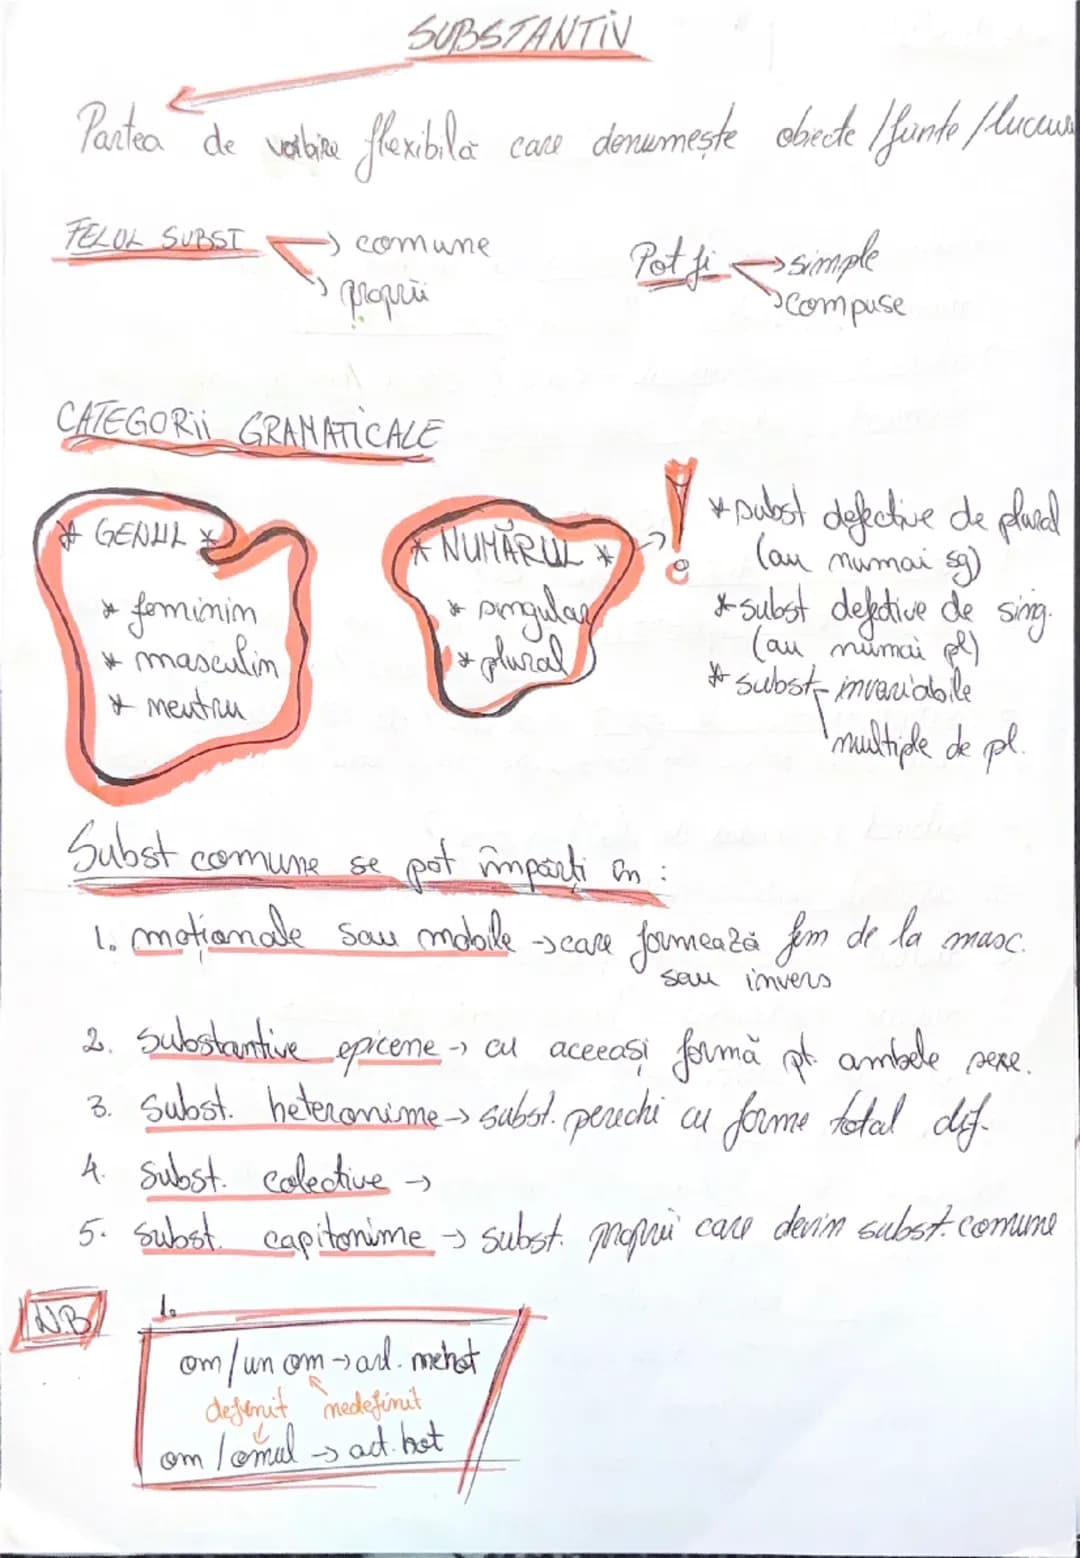 SUBSTANTIV
Partea de vorbire flexibilă care denumește obiecte / ființe / lucruri
FELUL SUBST → comune
→ proprii
Pot fi → simple
→ compuse
CATEGORII GRAMATICALE
* GENUL *
* feminin
* masculin
* neutru
* NUMĂRUL *
* singular
* plural
→ !
* subst defective de plural
(au numai sg)
* subst defective de sing.
(au numai pl)
* subst invariabile
multiple de pl.
Subst comune se pot împărți în :
1. moționale sau mobile → care formează fem de la masc.
sau invers
2. Substantive epicene → cu aceeași formă pt. ambele sexe.
3. Subst. heteronime → subst. perechi cu forme total dif.
4. Subst. colective →
5. Subst. capitonime → subst. proprii care devin subst. comune
N.B
1.
om / un om → art. nehot
definit nedefinit
om / omul → art. hot